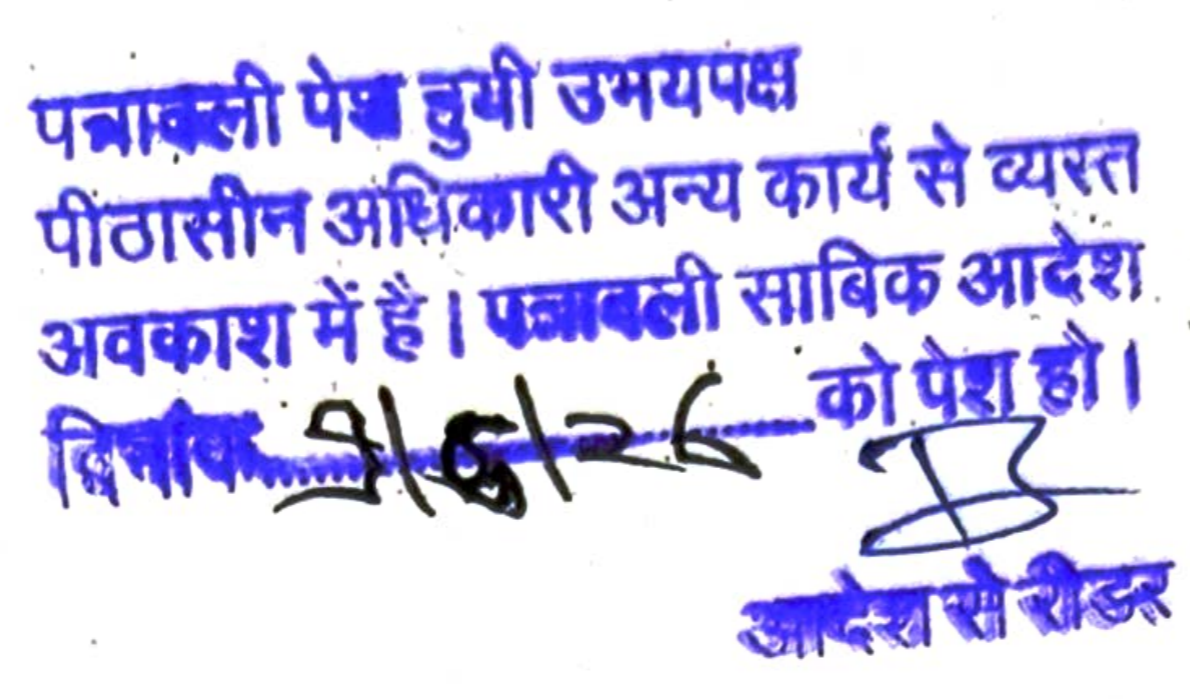 पत्रावली पेश हुयी उभयपक्ष
पीठासीन अधिकारी अन्य कार्य से व्यस्त
अवकाश में है। पत्रावली साबिक आदेश
दिनांक 9/6/26 को पेश हो।
आदेश से रीडर